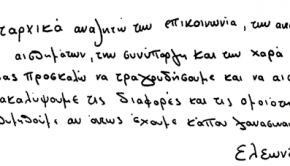 ταρχικά αναζητώ την επικοινωνία, την ανα
αισθημάτων, την συνύπαρξη και την χαρά
σας προσκαλώ να τραγουδήσουμε και να αισ
ακαλύψουμε τις διαφορές και τις ομοιότη
θυμηθούμε αν όντως έχουμε κάπου ξανασυνα
Ελεων